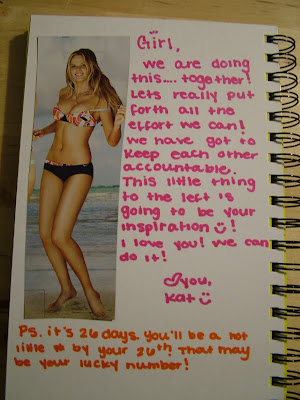 Girl,
we are doing
this.... together!
Lets really put
forth all the
effort we can!
we have got to
keep each other
accountable.
This little thing
to the left is
going to be your
inspiration!
I love you! we can
do it!
you,
Kat
PS. it's 26 days. you'll be a hot
little # by your 26th! That may
be your lucky number!